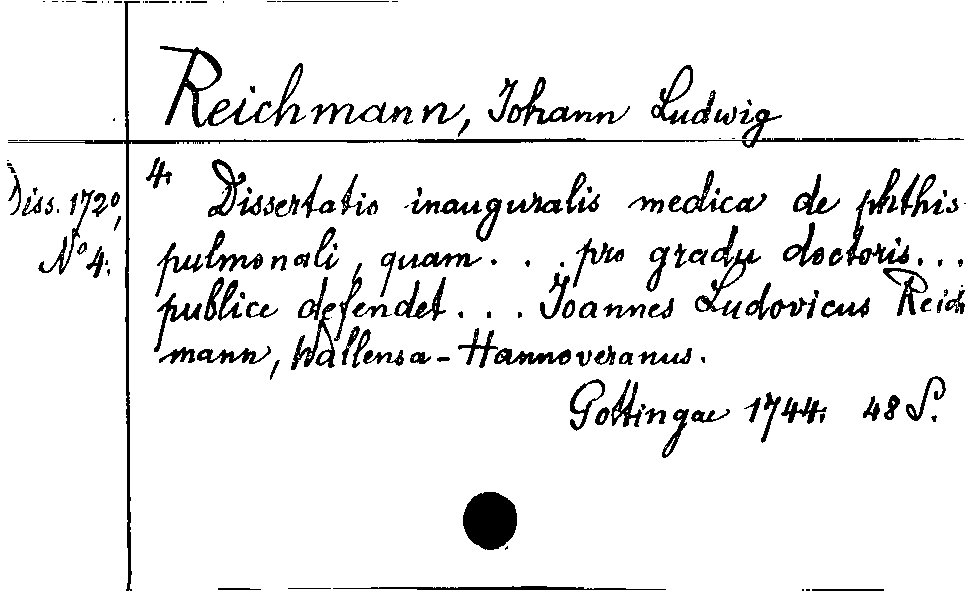 Reichmann, Johann Ludwig
Diss. 172°,
N° 4.
4. Dissertatio inauguralis medica de phthis
pulmonali, quam . . . pro gradu doctoris . . .
publice defendet . . . Joannes Ludovicus Reich
mann, Wallensa-Hannoveranus.
Gottingae 1744. 48 S.